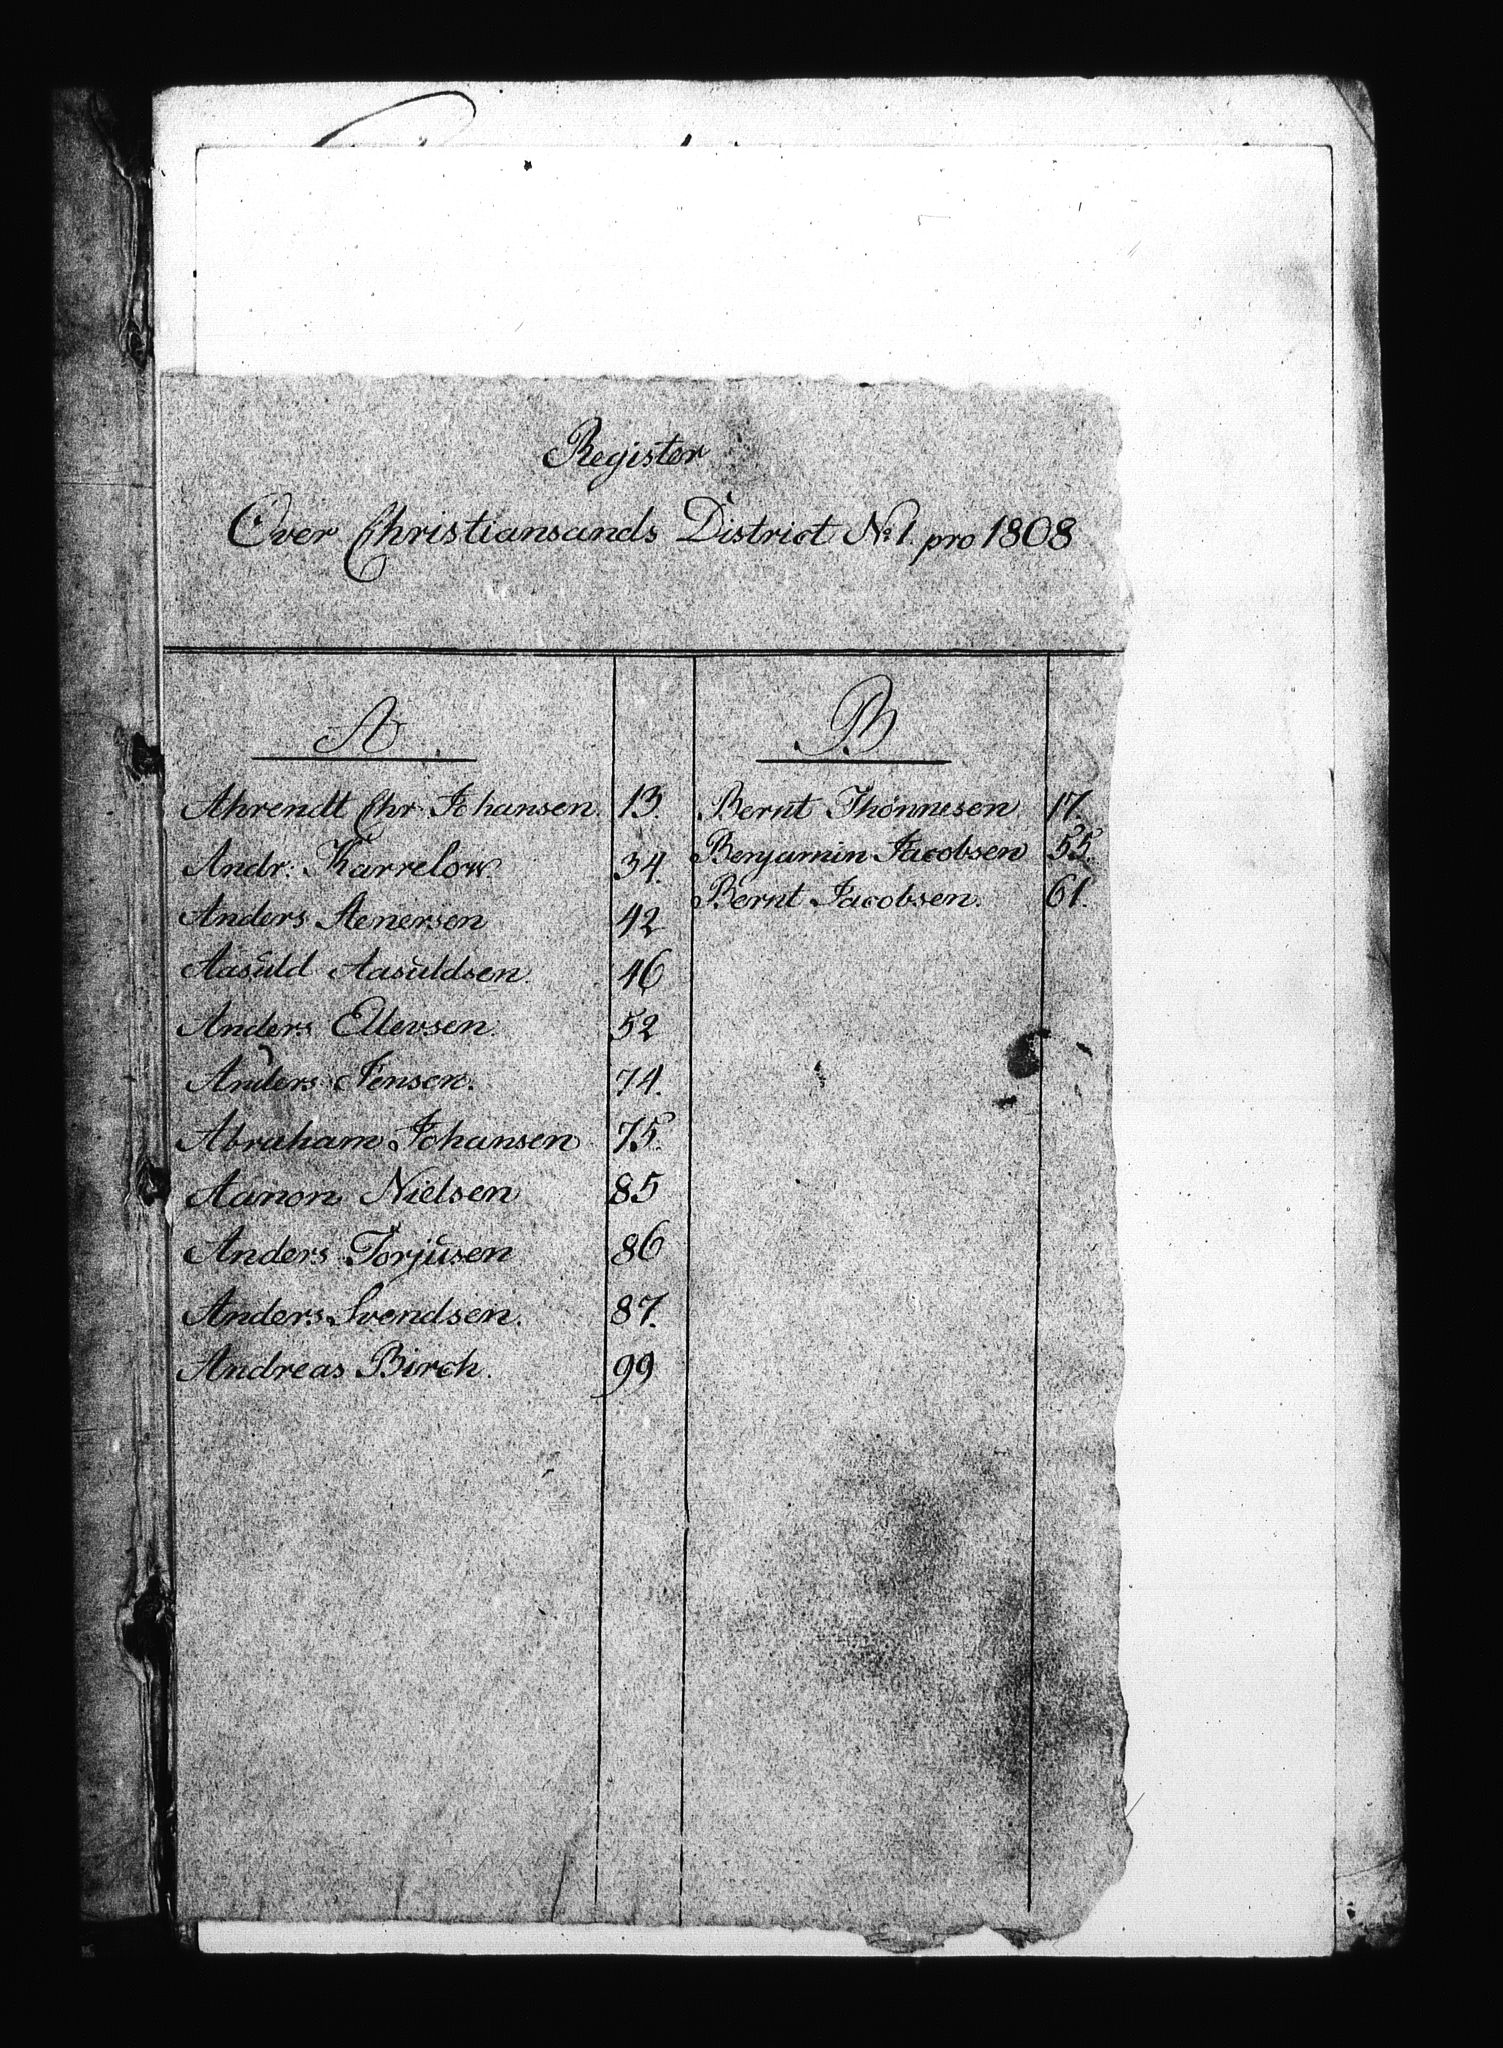 Register
Over Christiansands District No 1. pro 1808
A
Ahrendt Chr. Johansen. 13.
Andr: Karrelow. 34.
Anders Stenersen 42
Aasuld Aasuldsen. 46
Anders Ellevsen. 52
Anders Jensen. 74.
Abraham Johansen 75.
Aanon Nielsen 85
Anders Torjusen 86
Anders Svendsen. 87.
Andreas Birch. 99
B
Bernt Thönnesen 17.
Benjamin Jacobsen 55.
Bernt Jacobsen. 61.